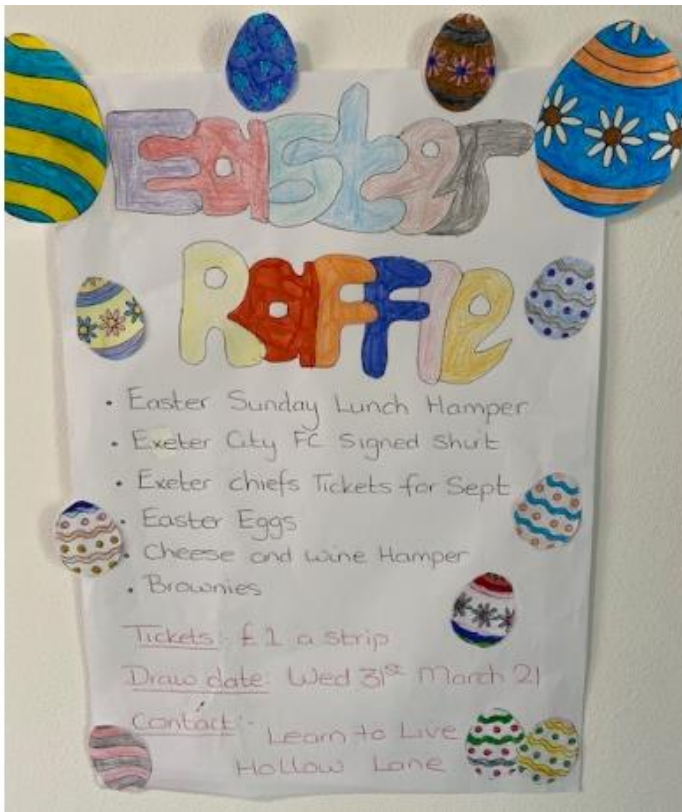 Easter
Raffle
• Easter Sunday Lunch Hamper
• Exeter City FC Signed Shirt
• Exeter chiefs Tickets for Sept
• Easter Eggs
• Cheese and wine Hamper
• Brownies
Tickets:- £1 a strip
Draw date: Wed 31st March 21
Contact:- Learn to Live
Hollow Lane